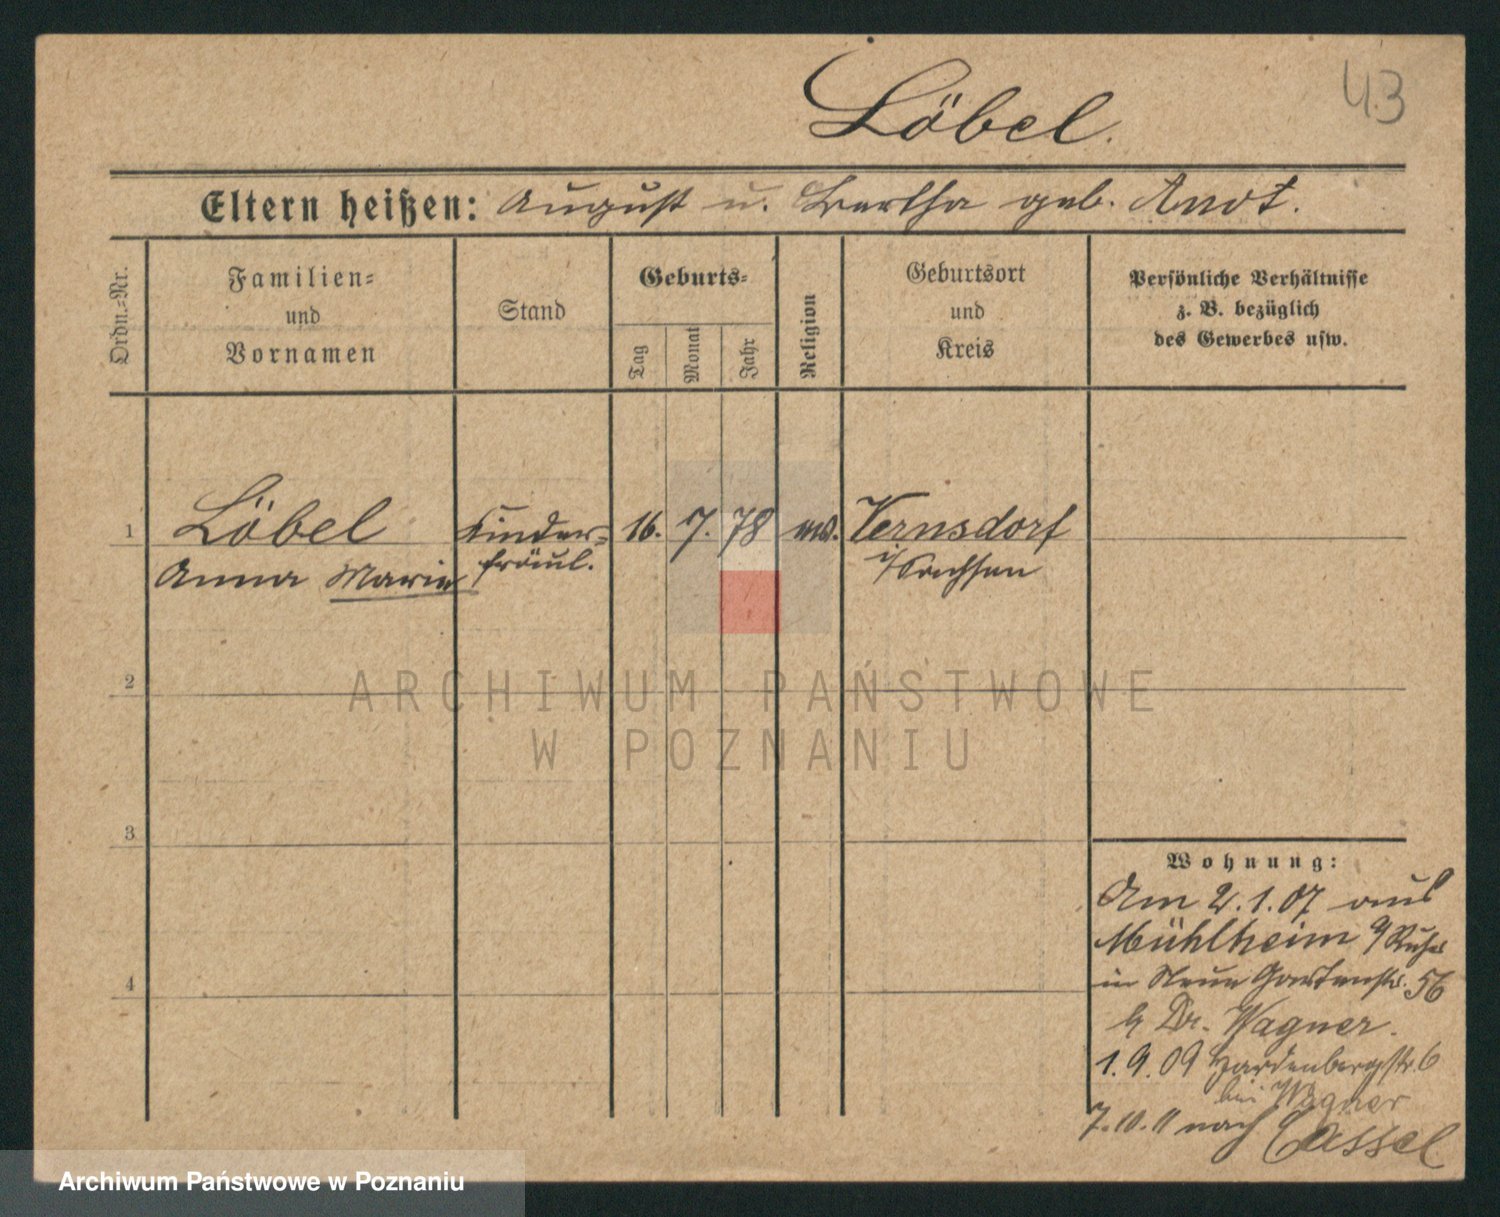 43
Löbel.
Eltern heißen: August u. Bertha geb. Arndt.
Ordn.-Nr.
Familien-
und
Vornamen
Stand
Geburts-
Tag
Monat
Jahr
Religion
Geburtsort
und
Kreis
Persönliche Verhältnisse
z. B. bezüglich
des Gewerbes usw.
1 Löbel Kinder- 16. 7. 78 ev. Vernsdorf
Anna Marie fräul. i/Sachsen
2
ARCHIWUM PAŃSTWOWE
W POZNANIU
3
Wohnung:
Am 2.1.07 aus
Mühlheim a/Ruhr
in Neue Gartenstr. 56
b Dr. Wagner.
1.9.09 Hardenbergstr. 6
bei Wagner
7.10.11 nach Cassel
4
Archiwum Państwowe w Poznaniu